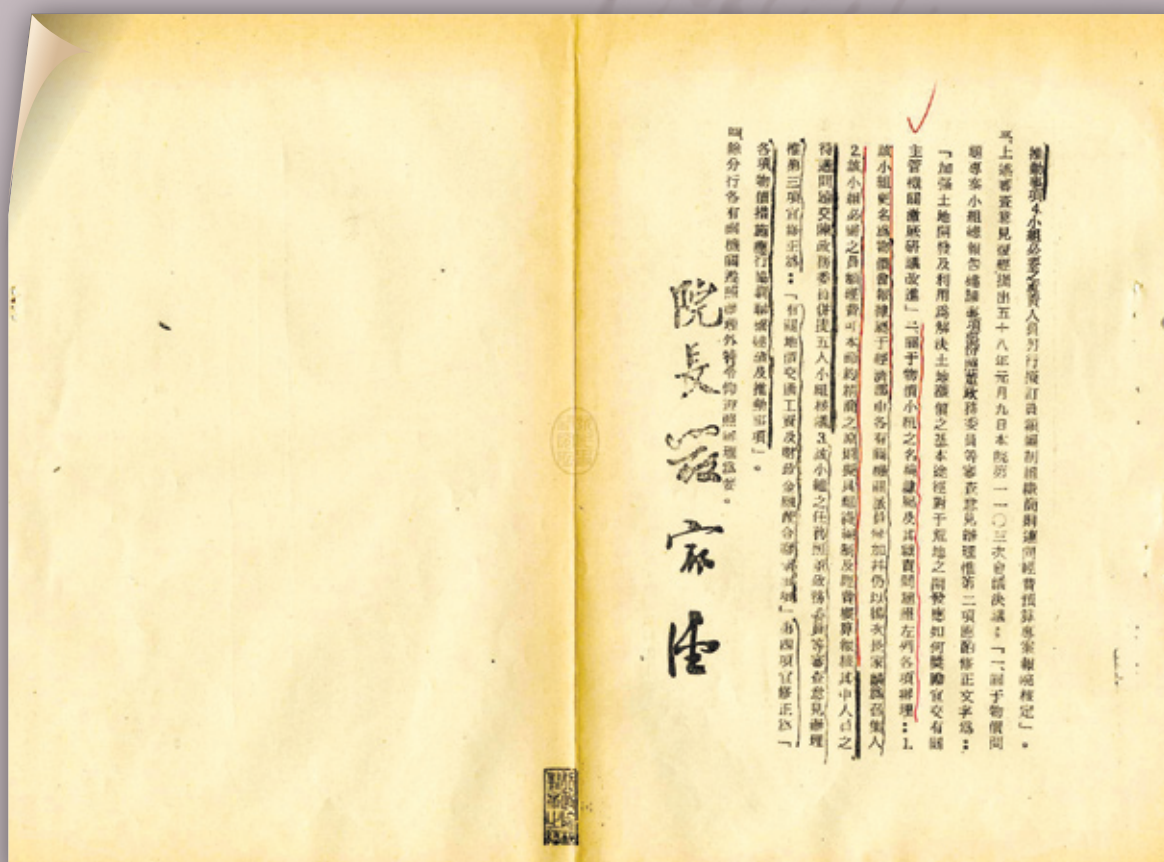 推動事項4.小組必要之專責人員另行擬訂員額編制組織簡則連同經費預算專案報院核定」。
上述審查意見復經提出五十八年元月九日本院第一一〇三次會議決議：「一、關于物價問
題專案小組總報告建議事項照陳兼政務委員等審查意見辦理惟第二項應酌修正文字為：
「加強土地開發及利用為解決土地漲價之基本途徑對于荒地之開發應如何獎勵宜交有關
主管機關澈底研議改進」二、關于物價小組之名稱隸屬及其職責問題照左列各項辦理：1.
該小組更名為物價會報隸屬于經濟部由各有關機關派員參加并仍以楊次長家麟為召集人
2.該小組必需之員額經費可本節約精簡之原則擬具組織編制及經費概算報核其中人員之
待遇問題交陳政務委員併提五人小組核議3.該小組之任務照兼政務委員等審查意見辦理
惟第三項宜修正為：「有關地價交通工資及財政金融配合事項」第四項宜修正為「
各項物價措施應行協調聯繫建議及推動事項」。
除分行各有關機關遵照辦理外特令仰遵照辦理為要。
院長嚴家淦